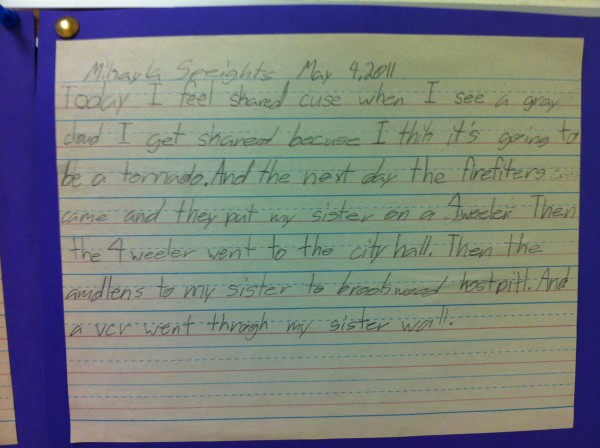 Mikayla Speights May 4, 2011
Today I feel shared cuse when I see a gray
cloud I get shared becuse I thih it's going to
be a tornado. And the next day the firefiters
came and they put my sister on a 4weeler. Then
the 4weeler went to the city hall. Then the
amdlens to my sister to brookwood hostpitl. And
a vcr went throgh my sister wall.